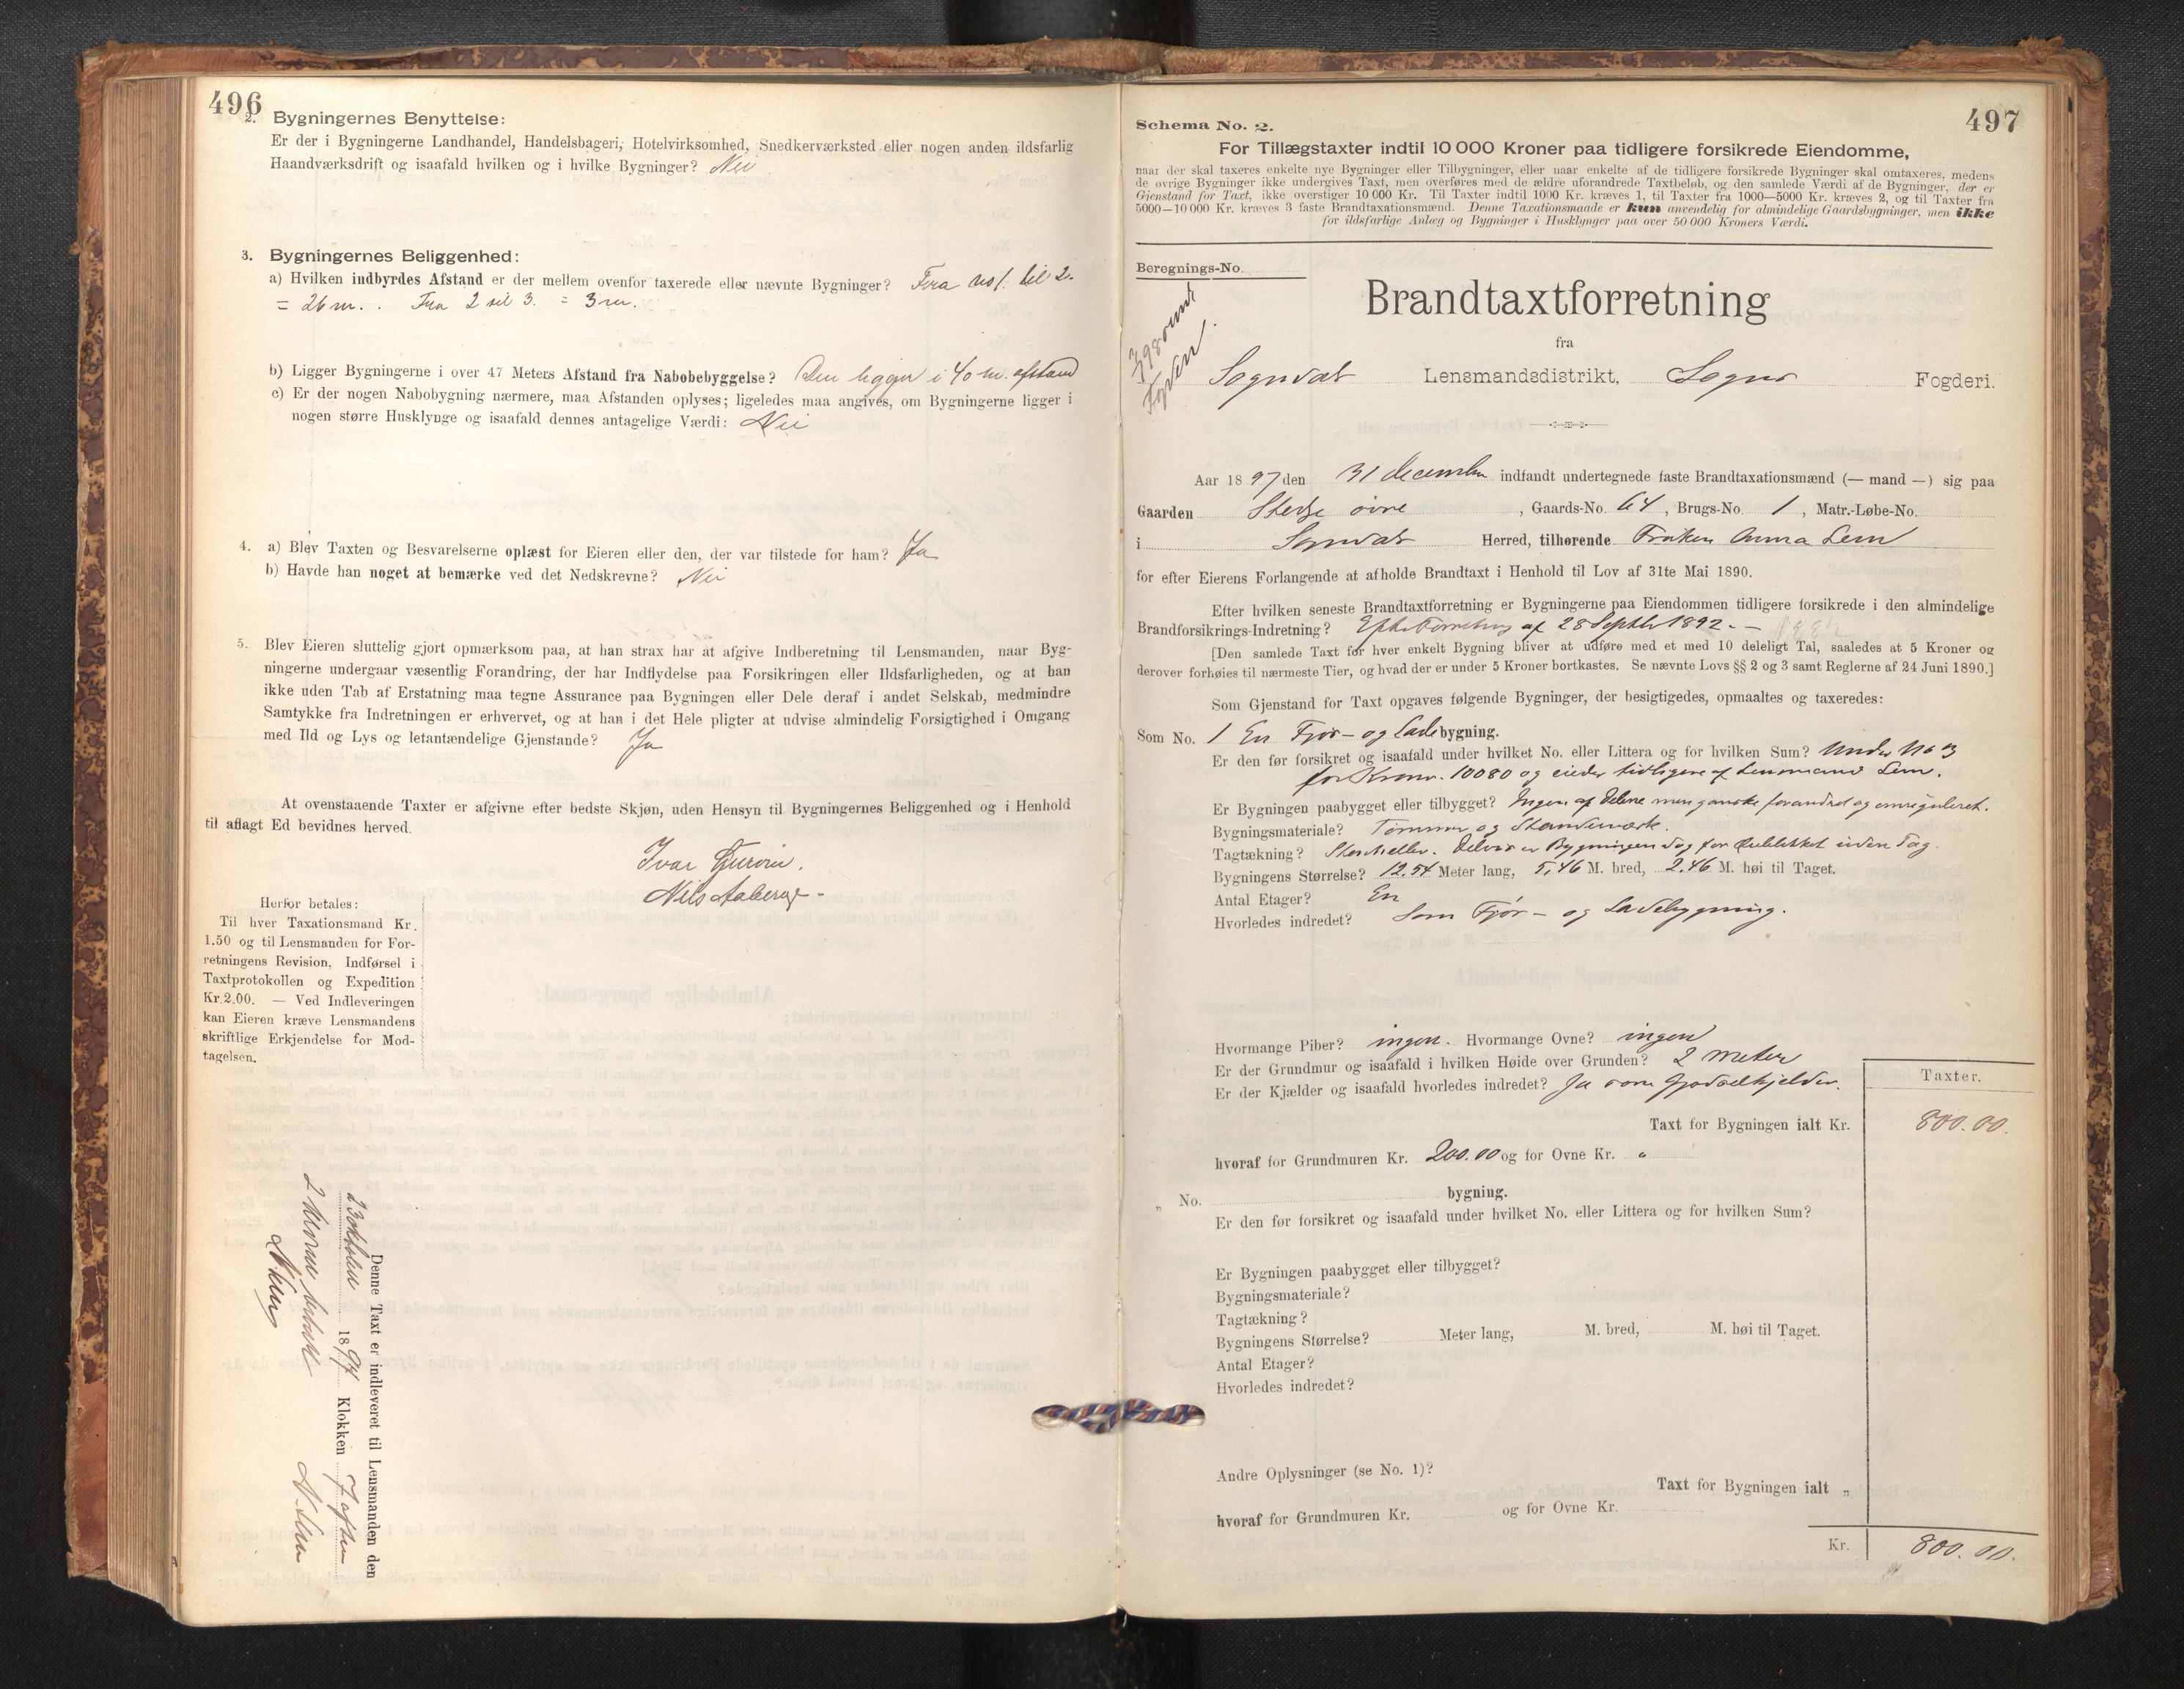 496
2. Bygningernes Benyttelse:
Er der i Bygningerne Landhandel, Handelsbageri, Hotelvirksomhed, Snedkerværksted eller nogen anden ildsfarlig
Haandværksdrift og isaafald hvilken og i hvilke Bygninger? Nei
3. Bygningernes Beliggenhed:
a) Hvilken indbyrdes Afstand er der mellem ovenfor taxerede eller nævnte Bygninger? Fra No 1. til 2.
= 26 m. . Fra 2 til 3. = 3 m.
b) Ligger Bygningerne i over 47 Meters Afstand fra Nabobebyggelse? Den ligger i 40 m. afstand
c) Er der nogen Nabobygning nærmere, maa Afstanden oplyses; ligeledes maa angives, om Bygningerne ligger i
nogen større Husklynge og isaafald dennes antagelige Værdi: Nei
4. a) Blev Taxten og Besvarelserne oplæst for Eieren eller den, der var tilstede for ham? Ja
b) Havde han noget at bemærke ved det Nedskrevne? Nei
5. Blev Eieren sluttelig gjort opmærksom paa, at han strax har at afgive Indberetning til Lensmanden, naar Byg-
ningerne undergaar væsentlig Forandring, der har Indflydelse paa Forsikringen eller Ildsfarligheden, og at han
ikke uden Tab af Erstatning maa tegne Assurance paa Bygningen eller Dele deraf i andet Selskab, medmindre
Samtykke fra Indretningen er erhvervet, og at han i det Hele pligter at udvise almindelig Forsigtighed i Omgang
med Ild og Lys og letantændelige Gjenstande? Ja
At ovenstaaende Taxter er afgivne efter bedste Skjøn, uden Hensyn til Bygningernes Beliggenhed og i Henhold
til aflagt Ed bevidnes herved.
Ivar
Nels Aaberge -
Herfor betales:
Til hver Taxationsmand Kr.
1.50 og til Lensmanden for For-
retningens Revision, Indførsel i
Taxtprotokollen og Expedition
Kr. 2.00. — Ved Indleveringen
kan Eieren kræve Lensmandens
skriftlige Erkjendelse for Mod-
tagelsen.
Denne Taxt er indleveret til Lensmanden den
23 oktober 1897 Klokken 7 aften
2 Kroner betalt N. Lem
N. Lem
497
Schema No. 2.
For Tillægstaxter indtil 10 000 Kroner paa tidligere forsikrede Eiendomme,
naar der skal taxeres enkelte nye Bygninger eller Tilbygninger, eller naar enkelte af de tidligere forsikrede Bygninger skal omtaxeres, medens
de øvrige Bygninger ikke undergives Taxt, men overføres med de ældre uforandrede Taxtbeløb, og den samlede Værdi af de Bygninger, der er
Gjenstand for Taxt, ikke overstiger 10 000 Kr. Til Taxter indtil 1000 Kr. kræves 1, til Taxter fra 1000—5000 Kr. kræves 2, og til Taxter fra
5000—10 000 Kr. kræves 3 faste Brandtaxationsmænd. Denne Taxationsmaade er kun anvendelig for almindelige Gaardsbygninger, men ikke
for ildsfarlige Anlæg og Bygninger i Husklynger paa over 50 000 Kroners Værdi.
Beregnings-No.
Brandtaxtforretning
fra
Sogndal Lensmandsdistrikt, Sogns Fogderi.
Aar 1897 den 31 december indfandt undertegnede faste Brandtaxationsmænd (— mand —) sig paa
Gaarden Stedje øvre, Gaards-No. 64, Brugs-No. 1, Matr.-Løbe-No.
i Sogndal Herred, tilhørende Frøken Anna Lem
for efter Eierens Forlangende at afholde Brandtaxt i Henhold til Lov af 31te Mai 1890.
Efter hvilken seneste Brandtaxtforretning er Bygningerne paa Eiendommen tidligere forsikrede i den almindelige
Brandforsikrings-Indretning? Efter Forretning af 28 Septbr 1892. —
[Den samlede Taxt for hver enkelt Bygning bliver at udføre med et med 10 deleligt Tal, saaledes at 5 Kroner og
derover forhøies til nærmeste Tier, og hvad der er under 5 Kroner bortkastes. Se nævnte Lovs §§ 2 og 3 samt Reglerne af 24 Juni 1890.]
Som Gjenstand for Taxt opgaves følgende Bygninger, der besigtigedes, opmaaltes og taxeredes:
Som No. 1 En Fjør- og Ladebygning.
Er den før forsikret og isaafald under hvilket No. eller Littera og for hvilken Sum? Under No 3
for Kroner 10080 og eiedes tidligere af Lensmand Lem.
Er Bygningen paabygget eller tilbygget? Ingen af Delene men ganske forandret og omreguleret.
Bygningsmateriale? Tømmer og Standerværk.
Tagtækning? Stenheller. Delvis er Bygningens Tag før dublikket uden Tag.
Bygningens Størrelse? 12.54 Meter lang, 5,46 M. bred, 2.46 M. høi til Taget.
Antal Etager? En
Hvorledes indredet? Som Fjør- og Ladebygning.
Hvormange Piber? ingen. Hvormange Ovne? ingen
Er der Grundmur og isaafald i hvilken Høide over Grunden? 2 meter
Er der Kjælder og isaafald hvorledes indredet? Ja som Gjødselkjelder.
Taxter.
Taxt for Bygningen ialt Kr. 800.00.
hvoraf for Grundmuren Kr. 200.00 og for Ovne Kr. "
„ No. bygning.
Er den før forsikret og isaafald under hvilket No. eller Littera og for hvilken Sum?
Er Bygningen paabygget eller tilbygget?
Bygningsmateriale?
Tagtækning?
Bygningens Størrelse? Meter lang, M. bred, M. høi til Taget.
Antal Etager?
Hvorledes indredet?
Andre Oplysninger (se No. 1)?
Taxt for Bygningen ialt „
hvoraf for Grundmuren Kr. og for Ovne Kr.
Kr. 800.00.